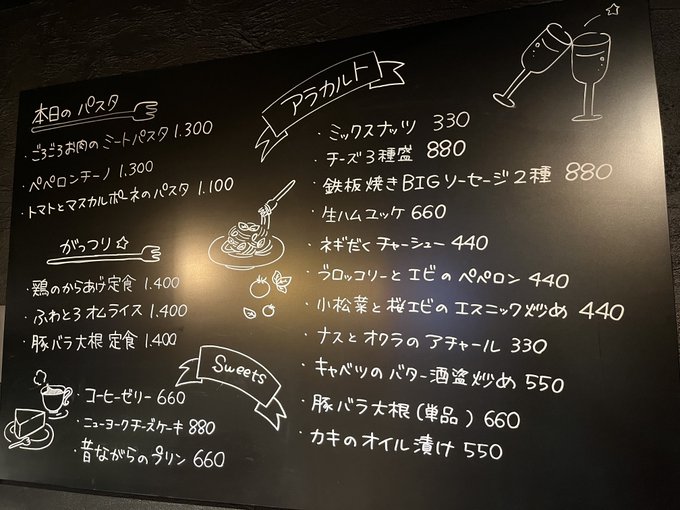 本日のパスタ
・ごろごろお肉のミートパスタ 1.300
・ペペロンチーノ 1.300
・トマトとマスカルポーネのパスタ 1.100
がっつり☆
・鶏のからあげ定食 1.400
・ふわとろオムライス 1.400
・豚バラ大根定食 1.400
Sweets
・コーヒーゼリー 660
・ニューヨークチーズケーキ 880
・昔ながらのプリン 660
アラカルト
・ミックスナッツ 330
・チーズ3種盛 880
・鉄板焼きBIGソーセージ2種 880
・生ハムユッケ 660
・ネギだくチャーシュー 440
・ブロッコリーとエビのペペロン 440
・小松菜と桜エビのエスニック炒め 440
・ナスとオクラのアチャール 330
・キャベツのバター酒盗炒め 550
・豚バラ大根(単品) 660
・カキのオイル漬け 550